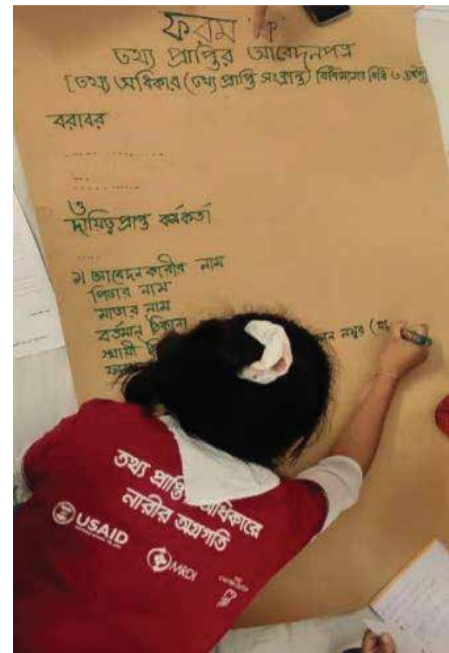 ফরম 'ক'
তথ্য প্রাপ্তির আবেদনপত্র
[তথ্য অধিকার (তথ্য প্রাপ্তি সংক্রান্ত) বিধিমালার বিধি ৩ দ্রষ্টব্য]
বরাবর
ও
দায়িত্বপ্রাপ্ত কর্মকর্তা
১। আবেদনকারীর নাম
পিতার নাম
মাতার নাম
বর্তমান ঠিকানা
স্থায়ী
নম্বর
তথ্য প্রাপ্তি অধিকারে
নারীর অগ্রগতি
USAID
MRDI